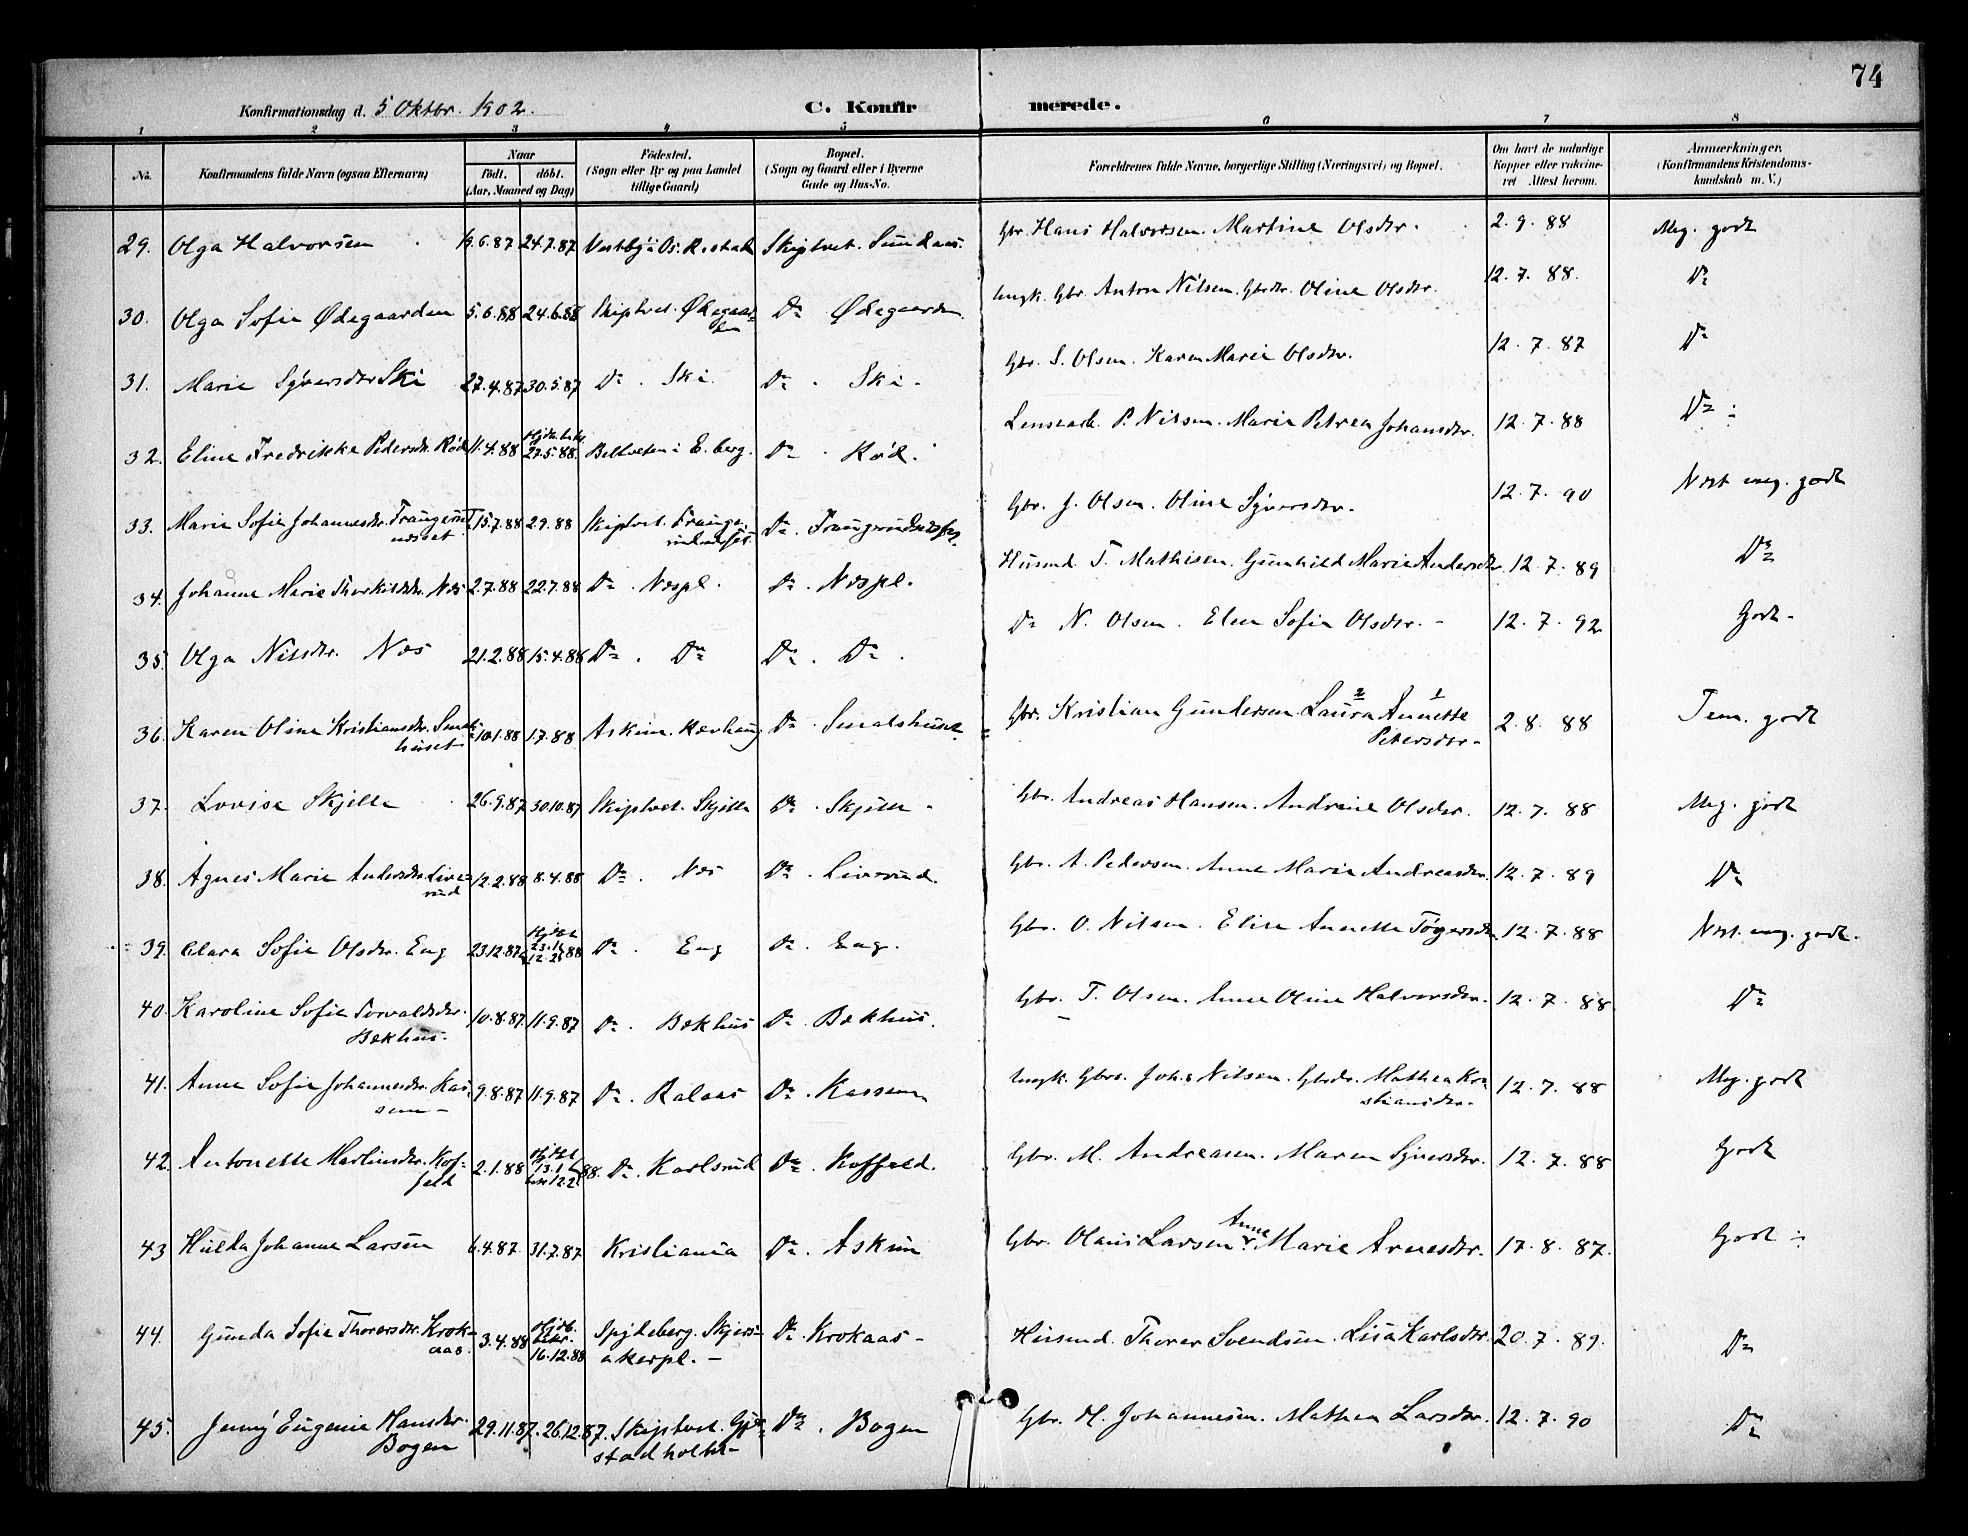 74
Konfirmationsdag d. 5 Oktbr. 1902. C. Konfirmerede.
1 2 3 4 5 6 7 8
No. Konfirmandens fulde Navn (ogsaa Efternavn) Naar født. døbt. (Aar, Maaned og Dag) Fødested. (Sogn eller By og paa Landet tillige Gaard) Bopæl. (Sogn og Gaard eller i Byerne Gade og Hus-No. Forældrenes fulde Navne, borgerlige Stilling (Næringsvei) og Bopæl. Om havt de naturlige Kopper eller vaccineret Attest herom. Anmærkninger. (Konfirmandens Kristendomskundskab m. V.)
29. Olga Halvorsen 19.6.87 24.7.87 Vestby i Os. Skiptvet. Sundaas. Gbr. Hans Halvorsen. Martine Olsdtr. 2.9.88 Meg. godt
30. Olga Sofie Ødegaarden 5.6.88 24.6.88 Skiptvet. Ødegaarden Do Ødegaarden. Ungk. Gbr. Anton Nilsen. Gbrdtr. Oline Olsdtr. 12.7.88. Do
31. Marie Syversdtr Ski 27.4.87 30.5.87 Do. Ski. Do. Ski. Gbr. S. Olsen. Karen Marie Olsdtr. 12.7.87 Do
32. Eline Fredrikke Pedersdtr. Rød 11.4.88 27.5.88. i E.berg. Do. Rød. P. Nilsen. Marie Petrea Johansdtr. 12.7.88 Do
33. Marie Sofie Johannesdtr. Traugerudnesset 15.7.88 2.9.88 Skiptvet. Do. Gbr. J. Olsen. Oline Syversdtr. 12.7.90 Næst meg. godt
34. Johanne Marie Thorkildsdtr. Næs 2.7.88 22.7.88 Do. Næspl. Do. Næspl. Husmd. T. Mathisen. Gunhild Marie Andersdtr. 12.7.89 Do
35 Olga Nilsdtr. Næs 21.2.88 15.4.88 Do. Do Do. Do. Do N. Olsen. Elen Sofie Olsdtr. 12.7.92 Godt
36. Karen Oline Kristiansdtr. Smedshuset 10.1.88 1.7.88 Askim. Do Gbr. Kristian Gundersen. Laura 2 Annette 1 Petersdtr. 2.8.88 Tem. godt
37. Lovise Skjelle 26.9.87 30.10.87 Skiptvet. Skjelle Do. Skjelle Gbr. Andreas Hansen. Andrine Olsdtr. 12.7.88 Meg. godt
38. Agnes Marie Andersdtr. Liverud 12.2.88 8.4.88 Do. Næs Do. Liverud. Gbr. A. Pedersen. Anne Marie Andreasdtr. 12.7.89 Do
39. Clara Sofie Olsdtr. Eng 23.12.87 Hjdbt 23.1 12.2 88 Do. Eng Do. Eng. Gbr. O. Nilsen. Elise Annette Tøgersdtr. 12.7.88 Næst meg. godt.
40. Karoline Sofie Torvaldsdtr. Bækhus. 10.8.87 11.9.87 Do. Bækhus Do. Bækhus. Gbr. T. Olsen. Anne Oline Halvorsdtr. 12.7.88 Do
41. Anne Sofie Johannesdtr. Kassem 9.8.87 11.9.87 Do. Ralaas Do. Kassem Ungk. Gbrs. Johs Nilsen. Gbrdtr. Mathea Kristiansdtr. 12.7.88 Meg. godt
42. Antonette Martinsdtr. Koffeld 2.1.88 Hjdbt 13.1 12.2 88. Do. Karlsrud Do. Koffeld. Gbr. M. Andreasen. Maren Syversdtr. 12.7.88 Godt
43 Hulda Johanne Larsen 6.4.87 31.7.87 Kristiania Do. Askim Gbr. Olaus Larsen. Anne Marie Arnesdtr. 17.8.87. Godt
44. Gunda Sofie Thoresdtr. Krokaas. 3.4.88 16.12.88 Spydeberg. Skjersakerpl. Do. Krokaas Husmd. Thorer Svendsen. Lisa Karlsdtr. 20.7.89. Do
45. Jenny Eugenie Hansdtr. Bogen 29.11.87. 26.12.87. Skiptvet. Do. Bogen Gbr. H. Johannesen. Mathea Larsdtr. 12.7.90 Do